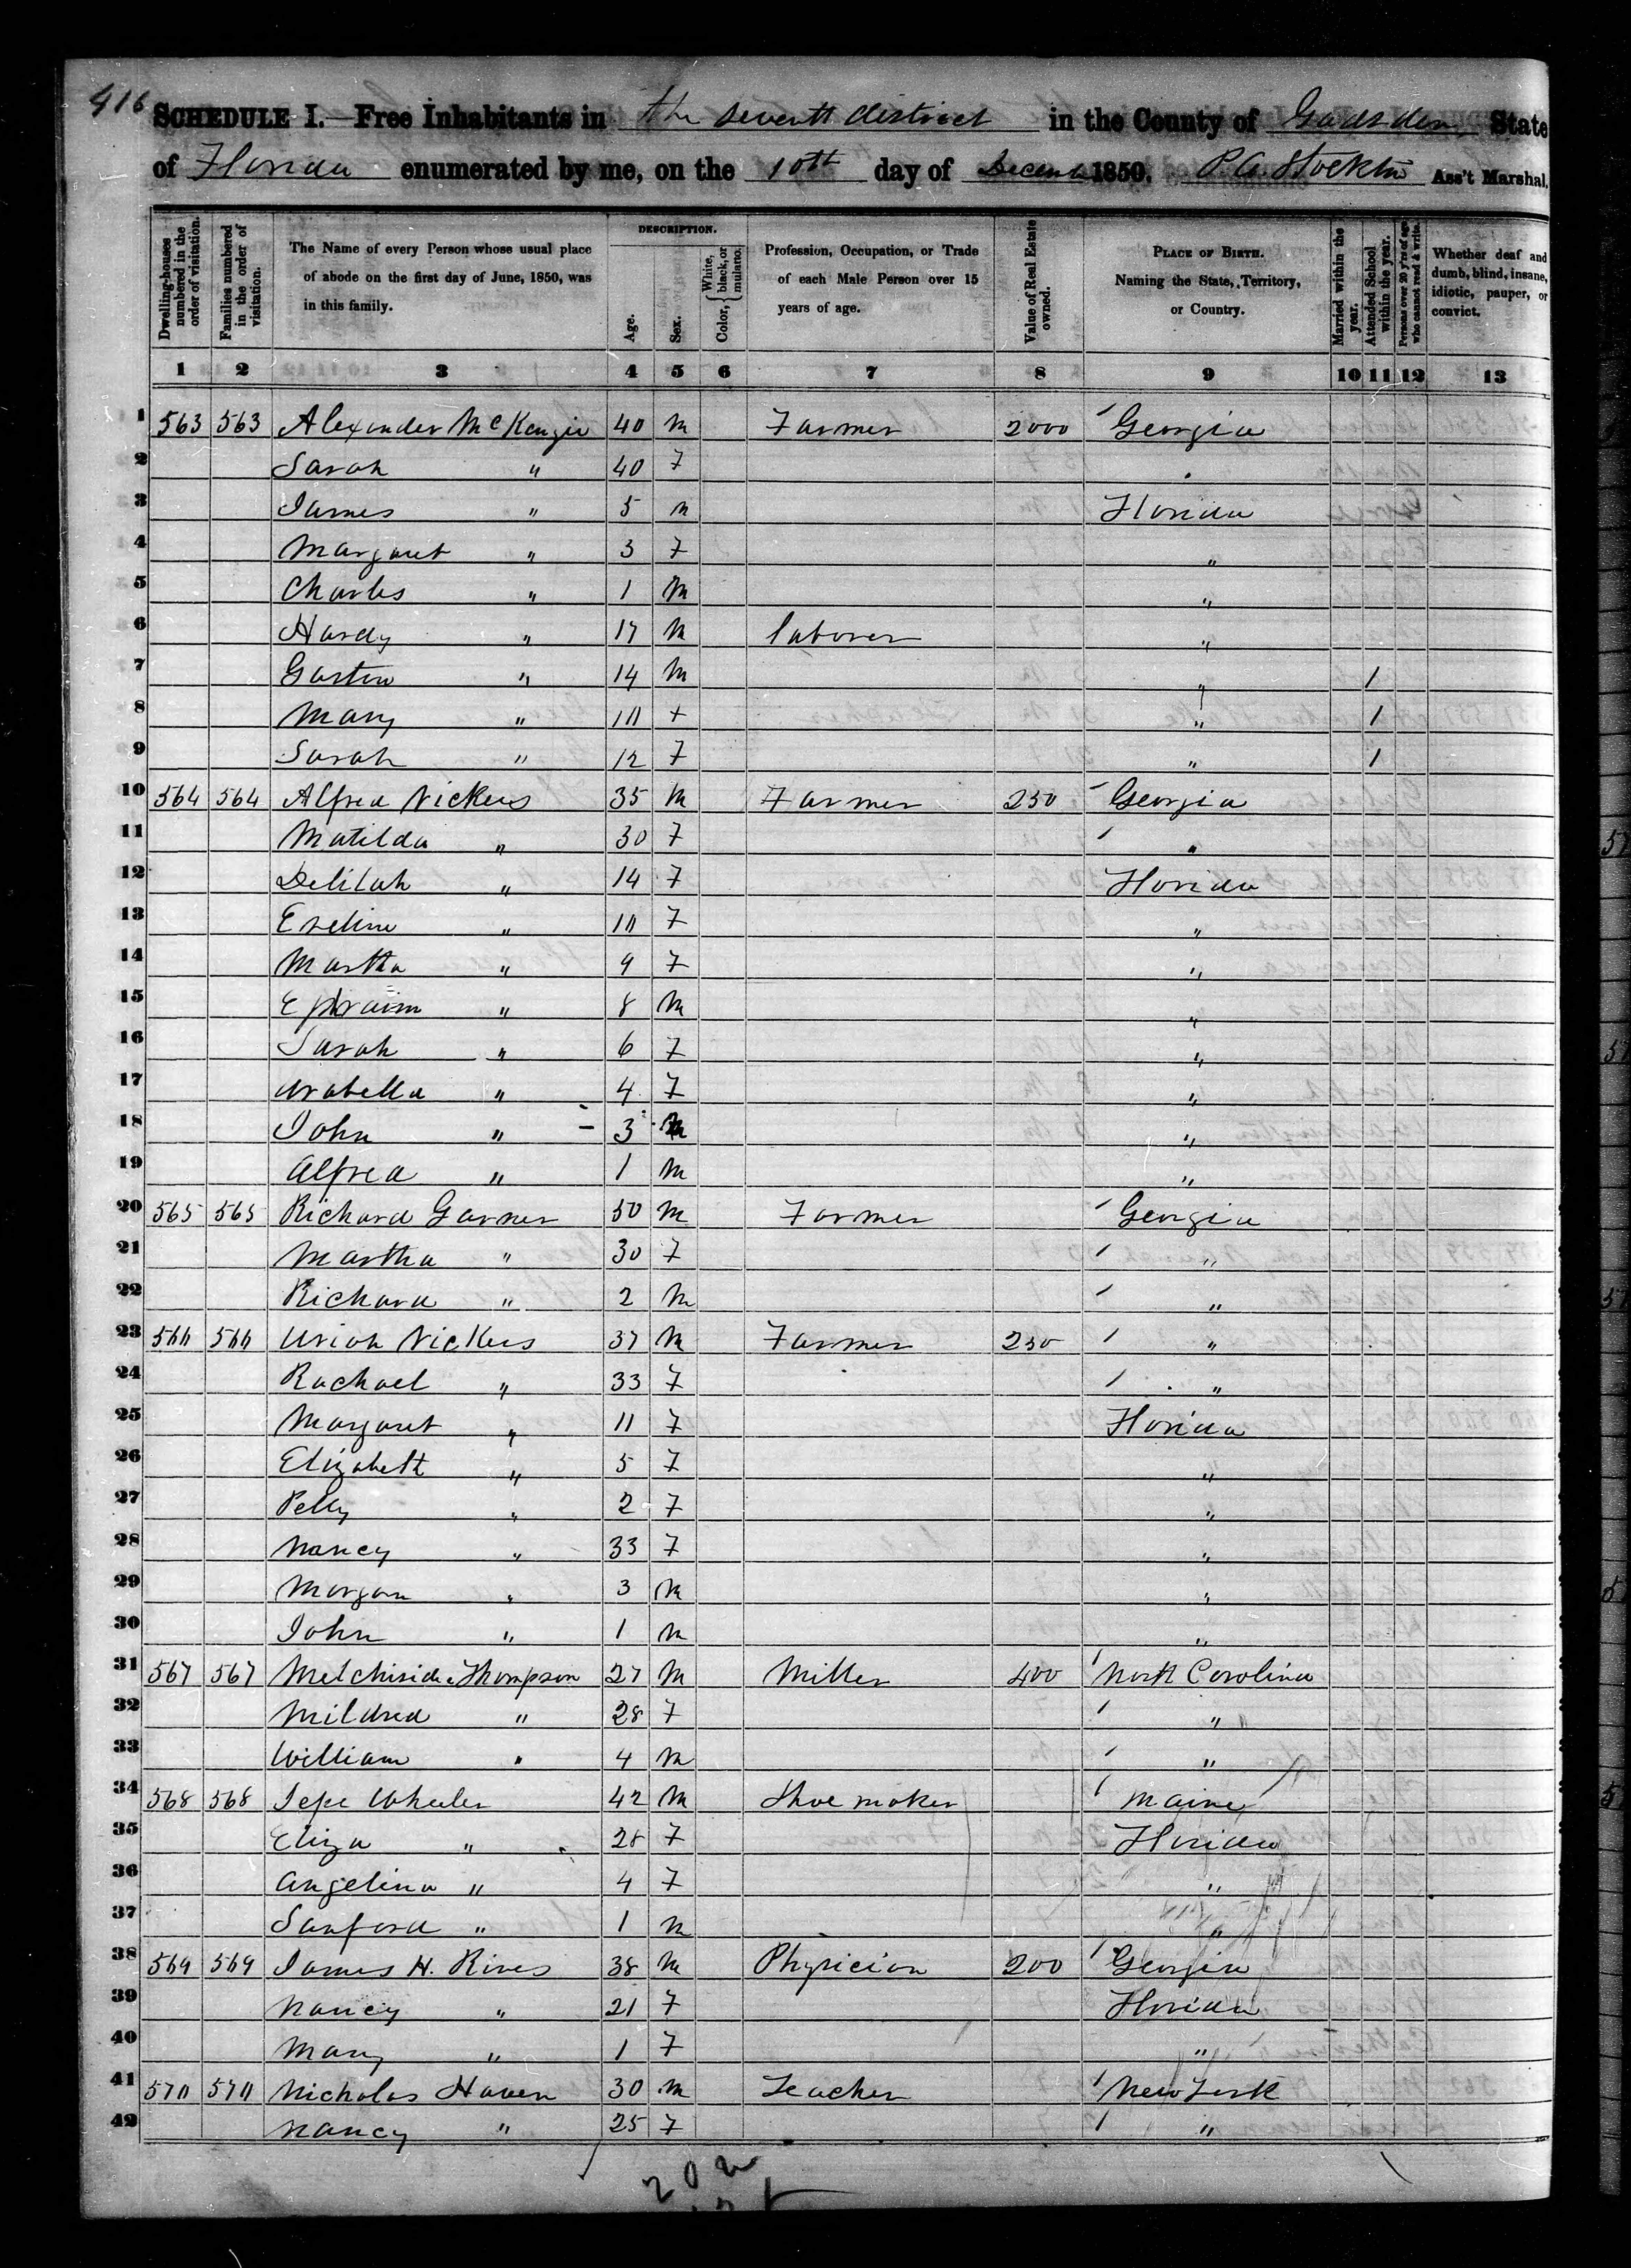 416
SCHEDULE I.—Free Inhabitants in the Seventh district in the County of Gadsden, State
of Florida enumerated by me, on the 10th day of Decemb 1850. P. A. Stockton Ass't Marshal.
Dwelling-houses numbered in the order of visitation.
Families numbered in the order of visitation.
The Name of every Person whose usual place of abode on the first day of June, 1850, was in this family.
DESCRIPTION.
Age.
Sex.
Color, { White, black, or mulatto.
Profession, Occupation, or Trade of each Male Person over 15 years of age.
Value of Real Estate owned.
PLACE OF BIRTH. Naming the State, Territory, or Country.
Married within the year.
Attended School within the year.
Persons over 20 y'rs of age who cannot read & write.
Whether deaf and dumb, blind, insane, idiotic, pauper, or convict.
1 2 3 4 5 6 7 8 9 10 11 12 13
1 563 563 Alexander McKenzie 40 m Farmer 2000 ' Georgia
2 Sarah " 40 F "
3 James " 5 m Florida
4 Margaret " 3 F "
5 Charles " 1 m "
6 Hardy " 17 m laborer "
7 Gaston " 14 m " 1
8 Mary " 10 + " 1
9 Sarah " 12 F " 1
10 564 564 Alfred Vickers 35 m Farmer 250 ' Georgia
11 Matilda " 30 F ' "
12 Delilah " 14 F Florida
13 Eveline " 10 F "
14 Martha " 9 F "
15 Ephraim " 8 m "
16 Sarah " 6 F "
17 Arabella " 4 F "
18 John " 3 m "
19 Alfred " 1 m "
20 565 565 Richard Garner 50 m Farmer ' Georgia
21 Martha " 30 F ' "
22 Richard " 2 m ' "
23 566 566 Uriah Vickers 37 m Farmer 250 ' "
24 Rachael " 33 F ' "
25 Margaret " 11 F Florida
26 Elizabeth " 5 F "
27 Polly " 2 F "
28 Nancy " 33 F "
29 Morgan " 3 m "
30 John " 1 m "
31 567 567 Thompson 27 m Miller 400 ' North Carolina
32 Mildred " 28 F ' "
33 William " 4 m ' "
34 568 568 Wheeler 42 m Shoe maker ' Maine
35 Eliza " 28 F Florida
36 Angelina " 4 F "
37 Sanford " 1 m "
38 569 569 James H. Rives 38 m Physician 200 ' Georgia
39 Nancy " 21 F Florida
40 Mary " 1 F "
41 570 570 Nicholas Haven 30 m Teacher ' New York
42 Nancy " 25 F ' "